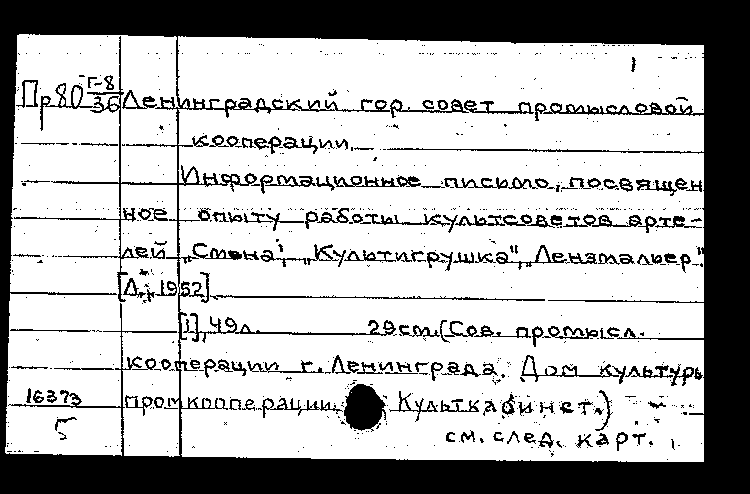 1
Пр80 Г-8/36 Ленинградский гор. совет промысловой
кооперации.
Информационное письмо, посвящен
ное опыту работы культсоветов арте-
лей „Смена", „Культигрушка", „Ленэмальер".
[Л., 1952].
[1], 49л. 29см. (Сов. промысл.
кооперации г. Ленинграда. Дом культуры
16373 промкооперации. Культкабинет.)
5 см. след. карт.